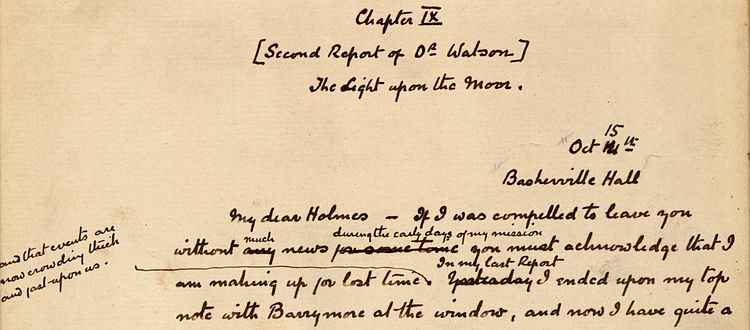 Chapter IX
[Second Report of Dr Watson]
The Light upon the Moor.
15
Oct 14th
Baskerville Hall
My dear Holmes – If I was compelled to leave you
much during the early days of my mission
without any news for some time you must acknowledge that I
and that events are
now crowding thick
and fast upon us.
In my last Report
am making up for lost time. Yesterday I ended upon my top
note with Barrymore at the window, and now I have quite a